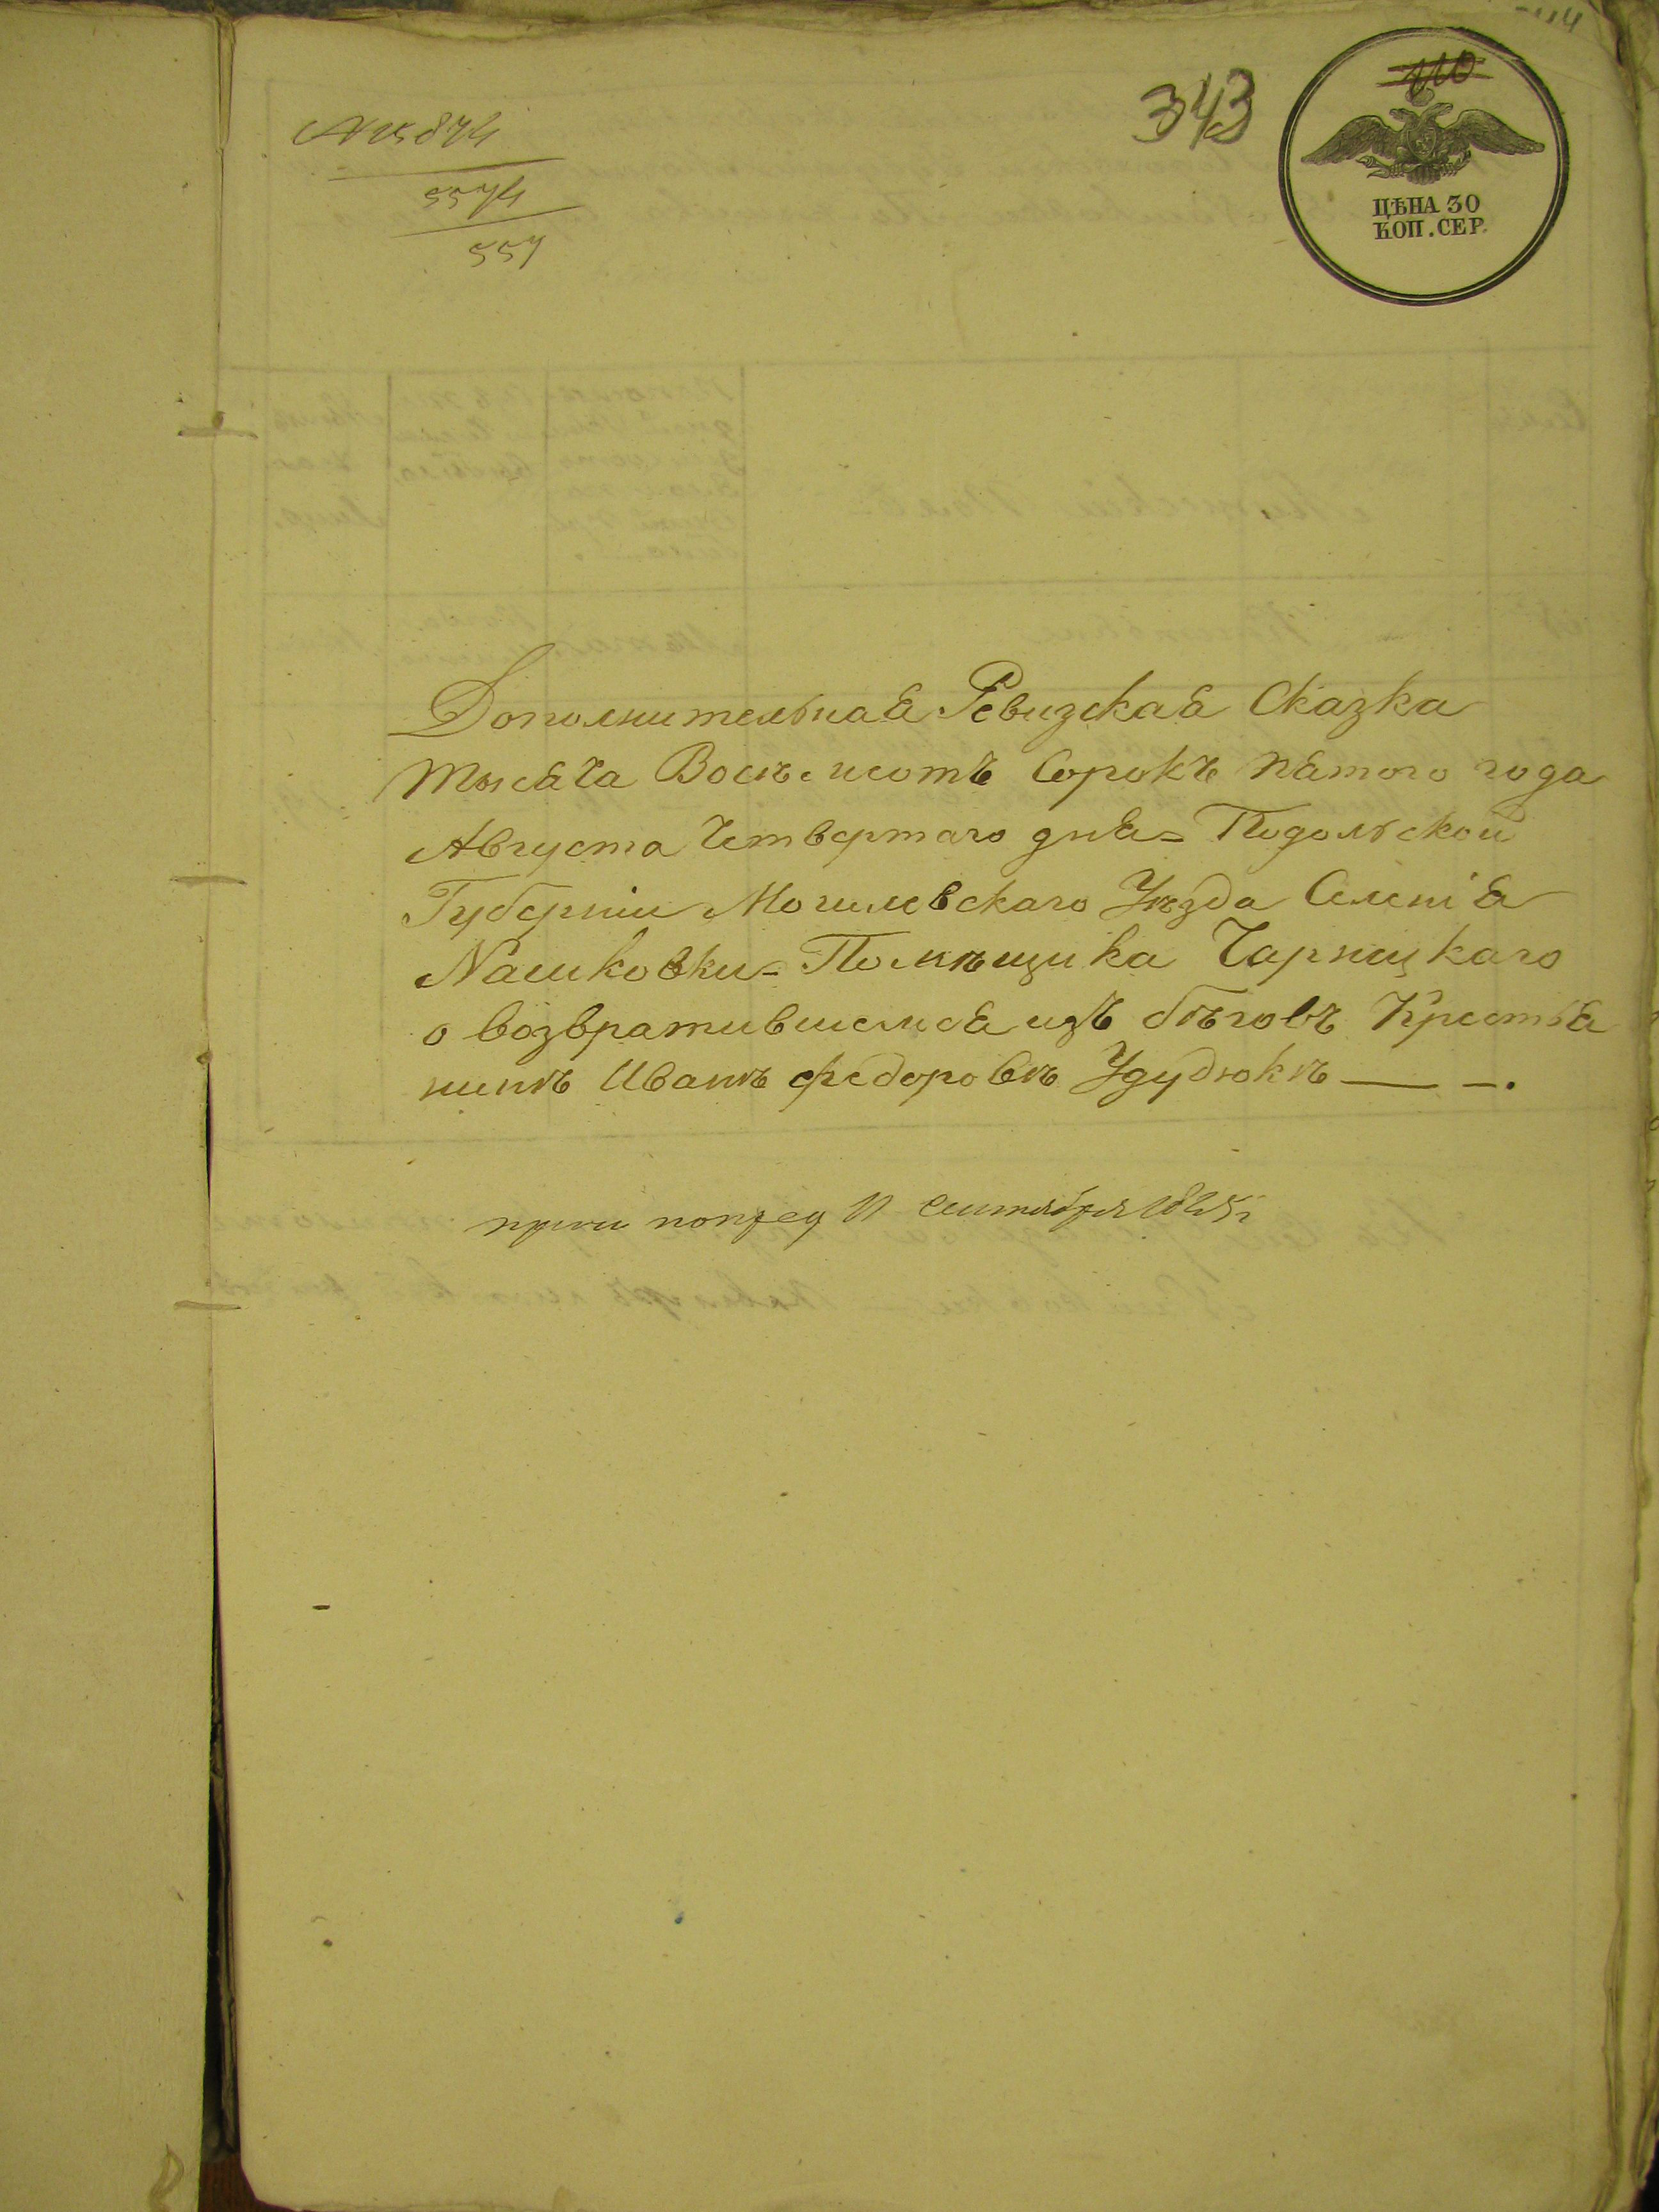 343
110
ЦѢНА 30
КОП. СЕР.
5574
557
Дополнительная Ревизская Сказка
тысяча Восемьсотъ Сорокъ пятого года
Августа Четвертаго дня = Подольской
Губерніи Могилевскаго Уѣзда Селенія
Нашковки = Помѣщика Чарнецкаго
о возвратившемся изъ бѣговъ Крестья
нинѣ Иванѣ Федоровѣ Удудюкѣ — —.
11 Сентября 1845 г